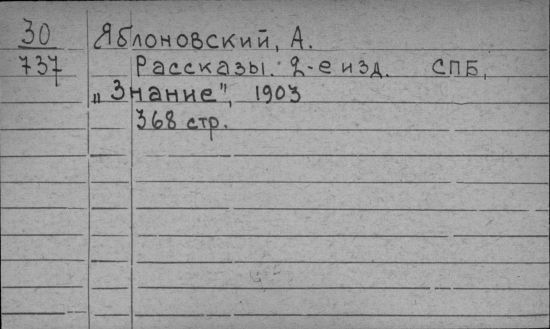 30
737
Яблоновский, А.
Рассказы. 2-е изд. СПБ,
„Знание", 1903
368 стр.